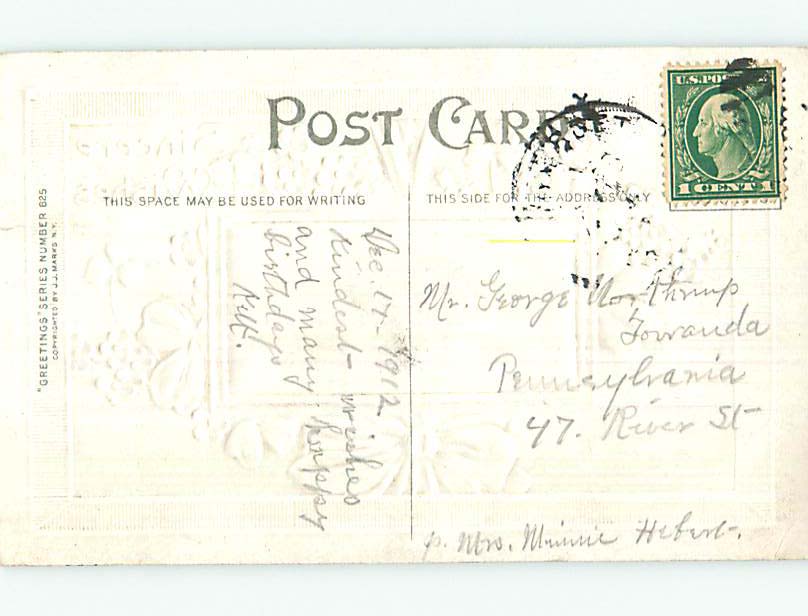 POST CARD
U.S. POSTAGE
1 CENT 1
THIS SPACE MAY BE USED FOR WRITING
THIS SIDE FOR THE ADDRESS ONLY
"GREETINGS" SERIES NUMBER 625
COPYRIGHTED BY J.J. MARKS N.Y.
Dec. 17-1912
Kindest wishes
and many happy
birthdays
Mr. George Northrup
Towanda
Pennsylvania
47. River St
p. Mrs. Minnie Hebert.